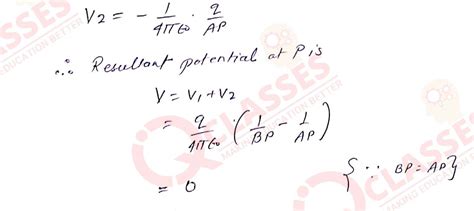 V2 = - 1/4π∈0 · q/AP
∴ Resultant potential at P is
V = V1 + V2
= q/4π∈0 · (1/BP - 1/AP)
= 0 {∵ BP = AP}
CLASSES
MAKING EDUCATION BETTER